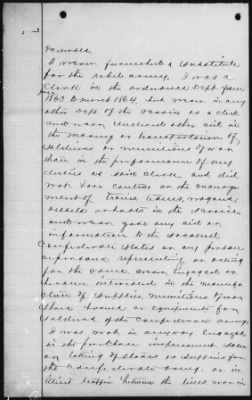 I never furnished a substitute
for the rebel army. I was a
Clerk in the ordnance Dept. from
1863 to March 1864, but never in any
other Dept of the Service as a clerk
and never rendered other aid in
the making or transportation of
soldiers or munitions of war
than in the performance of my
duties as said clerk and did
not have control or the manage
ment of trains, wagons,
vessels or boats in the service
and never gave any aid or
information to the so called
Confederate States or any person
or persons representing or acting
for the same. Never engaged or
became interested in the manufac
ture of supplies, munitions of war
or equipments for
soldiers of the Confederate army.
I was not in anyway engaged
in the purchase impressment sale
or taking of stores or supplies for
the Confederate army, or in
illicit traffic between the lines, never